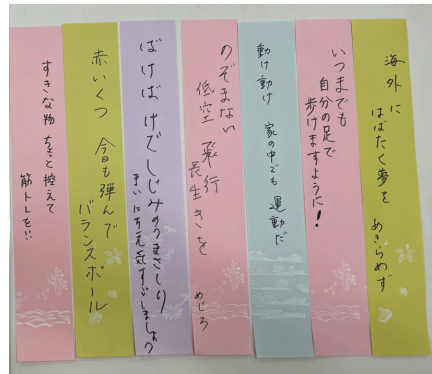 海外に
はばたく夢を
あきらめず
いつまでも
自分の足で
歩けますように!
動け動け 家の中でも 運動だ
のぞまない
低空飛行
長生きを
めじろ
ばけばけでしじみのうまさしり
まいにち元気すごしましょう
赤いくつ 今日も弾んで
バランスボール
すきな物 ちょっと控えて
筋トレを!!